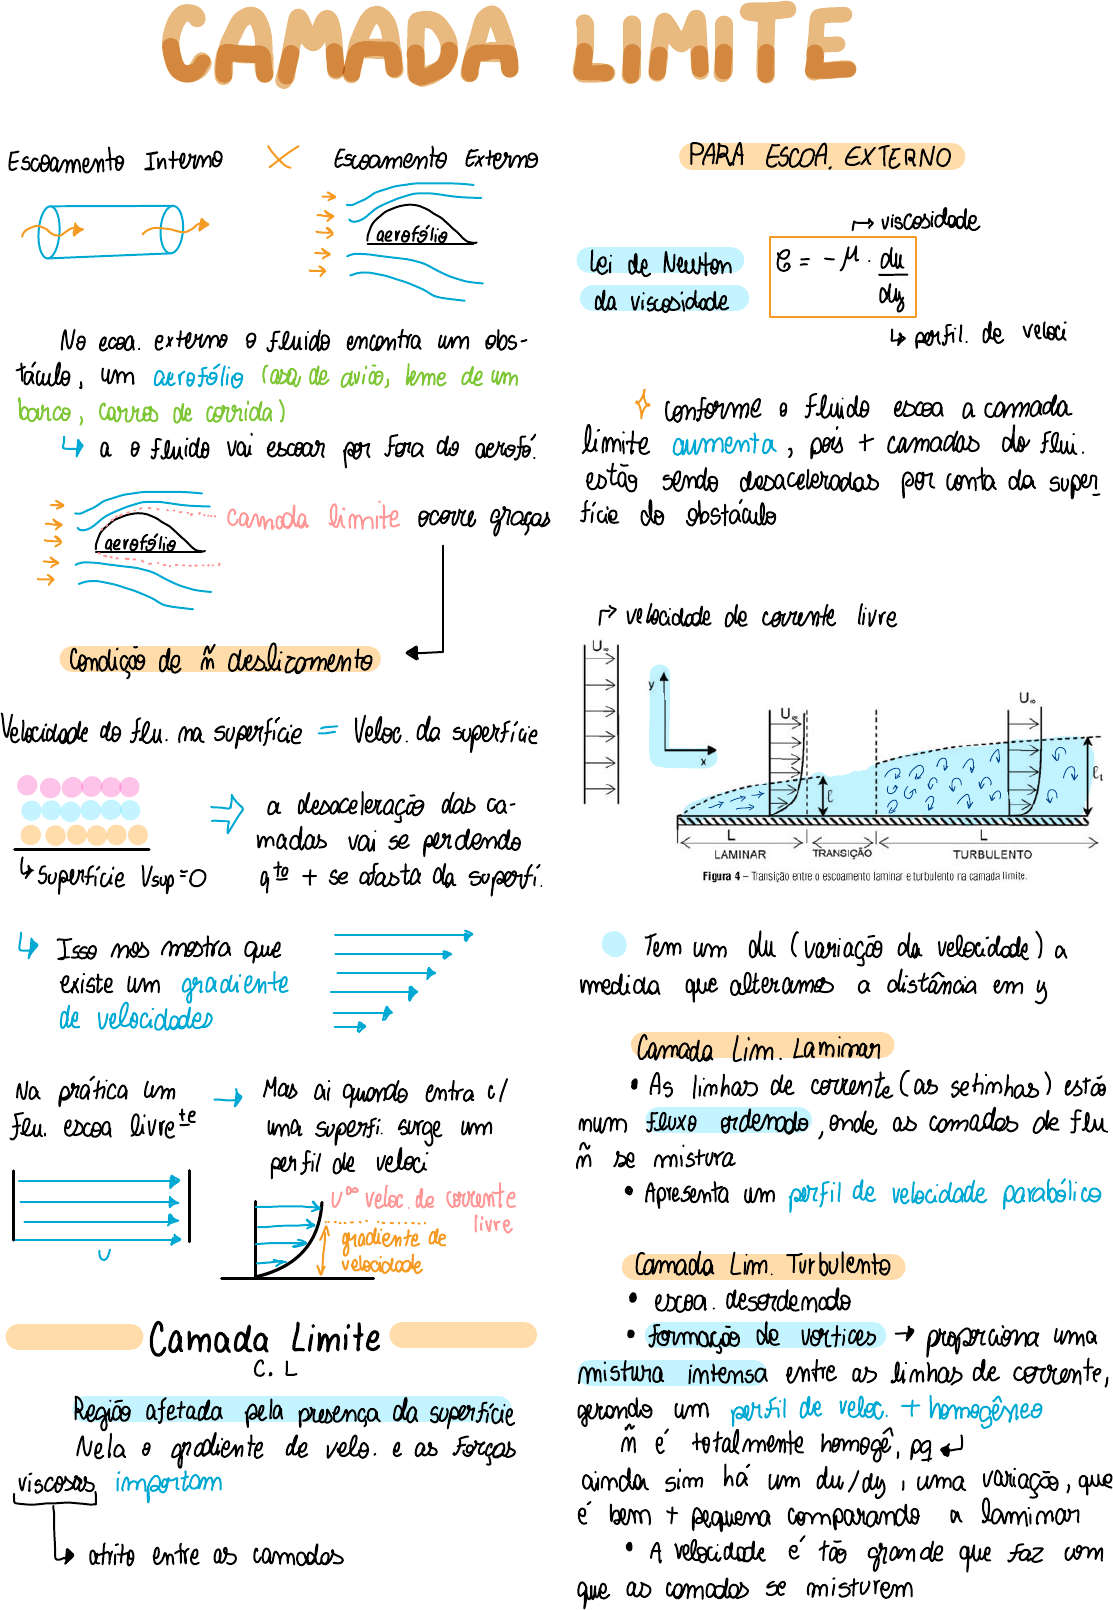 CAMADA LIMITE
Escoamento Interno X Escoamento Externo
aerofólio
No ecoa. externo o fluido encontra um obs-
táculo, um aerofólio (asa de avião, leme de um
barco, carros de corrida)
↳ a o fluido vai escoar por fora do aerofó.
aerofólio
camada limite ocorre graças
Condição de ñ deslizamento
Velocidade do flu. na superfície = Veloc. da superfície
↳ superfície Vsup=0
⇒ a desaceleração das ca-
madas vai se perdendo
qto + se afasta da superfí.
↳ Isso nos mostra que
existe um gradiente
de velocidades
Na prática um
flu. escoa livrete
U
→ Mas ai quando entra c/
uma superfí. surge um
perfil de veloci
U∞ veloc. de corrente
livre
gradiente de
velocidade
Camada Limite
C. L
Região afetada pela presença da superfície
Nela o gradiente de velo. e as forças
viscosas importam
↳ atrito entre as camadas
PARA ESCOA. EXTERNO
lei de Newton
da viscosidade
↦ viscosidade
τ = - μ · du/dy
↳ perfil. de veloci
✧ conforme o fluido escoa a camada
limite aumenta, pois + camadas do flui.
estão sendo desaceleradas por conta da super
fície do obstáculo
↱ velocidade de corrente livre
U∞
y
x
U∞
U∞
ℓ
ℓt
L
L
LAMINAR
TRANSIÇÃO
TURBULENTO
Figura 4 – Transição entre o escoamento laminar e turbulento na camada limite.
Tem um du (variação da velocidade) a
medida que alteramos a distância em y
Camada Lim. Laminar
• As linhas de corrente (as setinhas) estão
num fluxo ordenado, onde as camadas de flu
ñ se mistura
• Apresenta um perfil de velocidade parabólico
Camada Lim. Turbulento
• escoa. desordenado
• formação de vortices → proporciona uma
mistura intensa entre as linhas de corrente,
gerando um perfil de veloc. + homogêneo
ñ é totalmente homogê, pq ↲
ainda sim há um du/dy, uma variação, que
é bem + pequena comparando a laminar
• A velocidade é tão grande que faz com
que as camadas se misturem